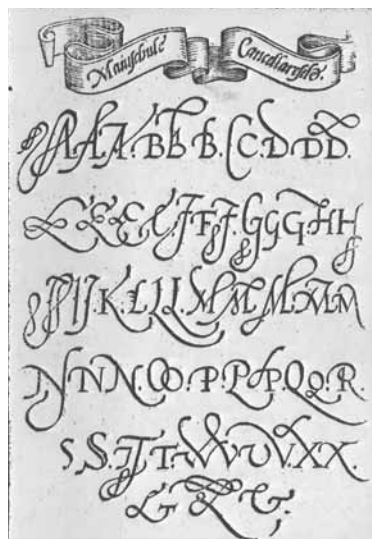 Maiuschule Cancellaresche.
AAA.BbB.CC.DDD.
EEEE.FFF.GGGHH
IIJ.K.LLL.MMM.MM
NNN.OO.P.PPQQ.R.
S.S.TT.VVUV.XX.
& & &;